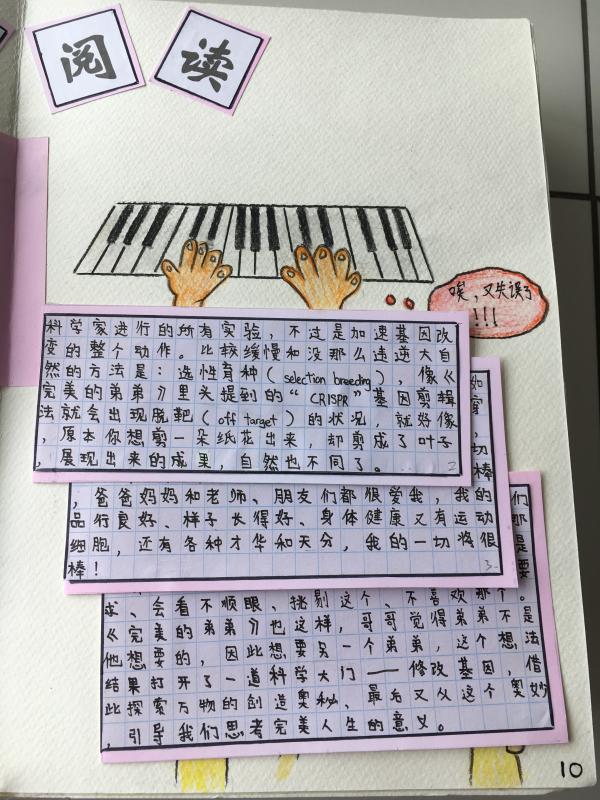 阅读
唉，又失误了
!!!
科学家进行的所有实验，不过是加速基因改
变的整个动作。比较缓慢和没那么违逆大自
然的方法是：选性育种（selection breeding），像《
完美的弟弟》里头提到的“CRISPR”基因剪辑
法就会出现脱靶（off target）的状况，就好像
，原本你想剪一朵纸花出来，却剪成了叶子
，展现出来的成果，自然也不同了。
2
如
切
棒
，爸爸妈妈和老师、朋友们都很爱我，我的
品行良好、样子长得好、身体健康又有运动
细胞，还有各种才华和天分，我的一切将很
棒！
3
们
那
是
要
求、会看不顺眼、挑剔这个、不喜欢那个。
《完美的弟弟》也这样，哥哥觉得弟弟不是
他想要的，因此想要另一个弟弟，这个想法
结果打开了一道科学大门——修改基因，借
此探索万物的创造奥秘、最后又从这个奥妙
，引导我们思考完美人生的意义。
10